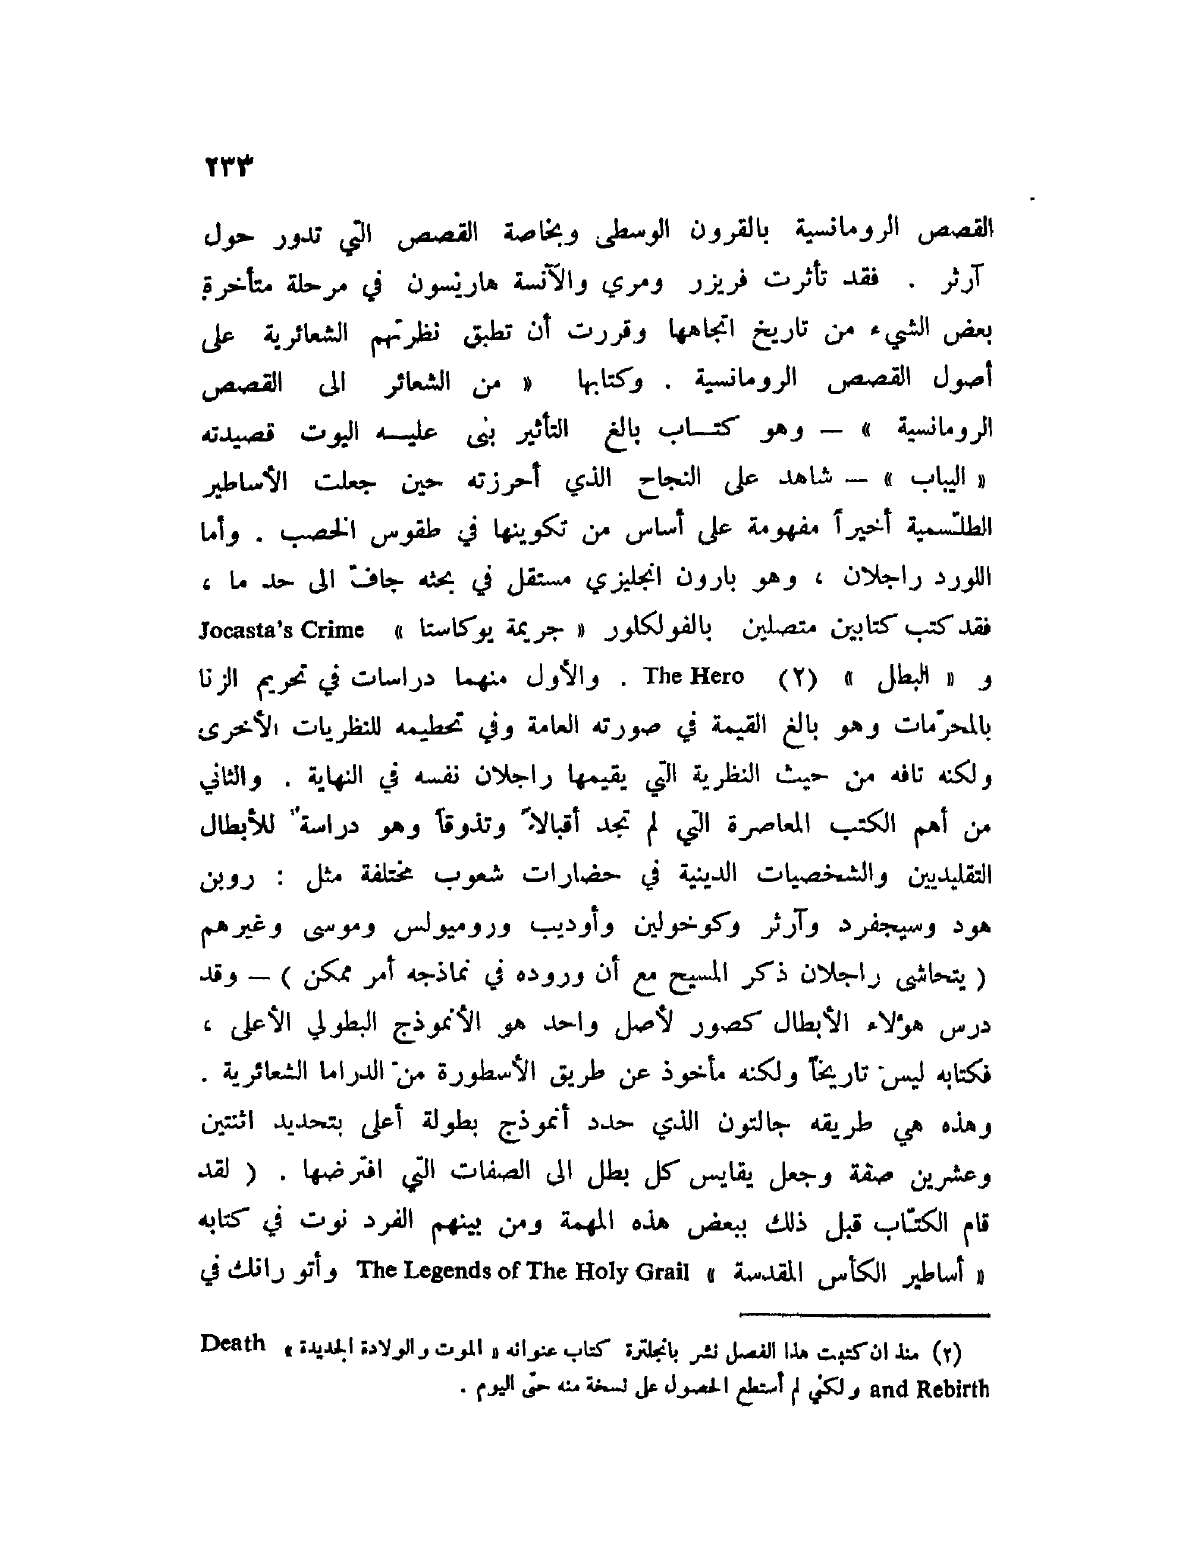 ٢٣٣
القصص الرومانسية بالقرون الوسطى وبخاصة القصص التي تدور حول
آرثر . فقد تأثرت فريزر ومري والآنسة هاريسون في مرحلة متأخرة
بعض الشيء من تاريخ اتجاهها وقررت أن تطبق نظرتهم الشعائرية على
أصول القصص الرومانسية . وكتابها « من الشعائر الى القصص
الرومانسية » — وهو كتـــاب بالغ التأثير بنى عليـــه اليوت قصيدته
« اليباب » — شاهد على النجاح الذي أحرزته حين جعلت الأساطير
الطلّسمية أخيراً مفهومة على أساس من تكوينها في طقوس الخصب . وأما
اللورد راجلان ، وهو بارون انجليزي مستقل في بحثه جافّ الى حد ما ،
فقد كتب كتابين متصلين بالفولكلور « جريمة يوكاستا » Jocasta's Crime
و « البطل » (٢) The Hero . والأول منهما دراسات في تحريم الزنا
بالمحرّمات وهو بالغ القيمة في صورته العامة وفي تحطيمه للنظريات الأخرى
ولكنه تافه من حيث النظرية التي يقيمها راجلان نفسه في النهاية . والثاني
من أهم الكتب المعاصرة التي لم تجد أقبالاً وتذوقاً وهو دراسة للأبطال
التقليديين والشخصيات الدينية في حضارات شعوب مختلفة مثل : روبن
هود وسيجفرد وآرثر وكوخولين وأوديب وروميولس وموسى وغيرهم
( يتحاشى راجلان ذكر المسيح مع أن وروده في نماذجه أمر ممكن ) — وقد
درس هؤلاء الأبطال كصور لأصل واحد هو الأنموذج البطولي الأعلى ،
فكتابه ليس تاريخاً ولكنه مأخوذ عن طريق الأسطورة من الدراما الشعائرية .
وهذه هي طريقه جالتون الذي حدد أنموذج بطولة أعلى بتحديد اثنتين
وعشرين صفة وجعل يقايس كل بطل الى الصفات التي افترضها . ( لقد
قام الكتّاب قبل ذلك ببعض هذه المهمة ومن بينهم الفرد نوت في كتابه
« أساطير الكأس المقدسة » The Legends of The Holy Grail وأتو رانك في
(٢) منذ ان كتبت هذا الفصل نشر بانجلترة كتاب عنوانه « الموت والولادة الجديدة » Death
and Rebirth ولكني لم أستطع الحصول على نسخة منه حتى اليوم .